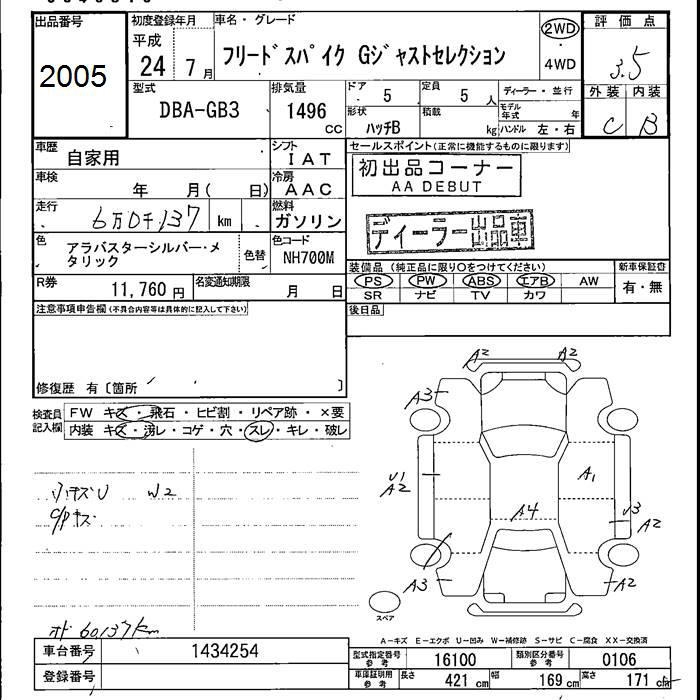 出品番号
2005
初度登録年月
平成
24 7月
車名・グレード
フリードスパイク Gジャストセレクション
2WD
・
4WD
評価点
3.5
外装 内装
C B
型式
DBA-GB3
排気量
1496
cc
ドア
5
形状
ハッチB
定員
5 人
積載
kg
ディーラー・並行
モデル年式 年
ハンドル 左・右
車歴
自家用
シフト
IAT
車検
年 月( 日)
冷房
AAC
走行
6万0千137 km
燃料
ガソリン
色
アラバスターシルバー・メ
タリック
色替
色コード
NH700M
R券
11,760 円
名変通知期限
月 日
セールスポイント(正常に機能するものに限ります)
初出品コーナー
AA DEBUT
ディーラー出品車
装備品(純正品に限り○をつけてください)
新車保証書
PS PW ABS エアB AW
SR ナビ TV カワ
有・無
後日品
注意事項申告欄(不具合内容等は具体的に記入して下さい)
修復歴 有〔箇所 〕
検査員
記入欄
FW キズ・飛石・ヒビ割・リペア跡・×要
内装 キズ・汚レ・コゲ・穴・スレ・キレ・破レ
W2
キズ
オド 60137km
A2 A2
A3 A3
U1
A2
A1
A4
U3
A2
A3
A2
スペア
A-キズ E-エクボ U-凹み W-補修跡 S-サビ C-腐食 XX-交換済
車台番号
1434254
登録番号
型式指定番号
参考
16100
類別区分番号
参考
0106
車庫証明用
参考
長さ 421 cm
幅 169 cm
高さ 171 cm